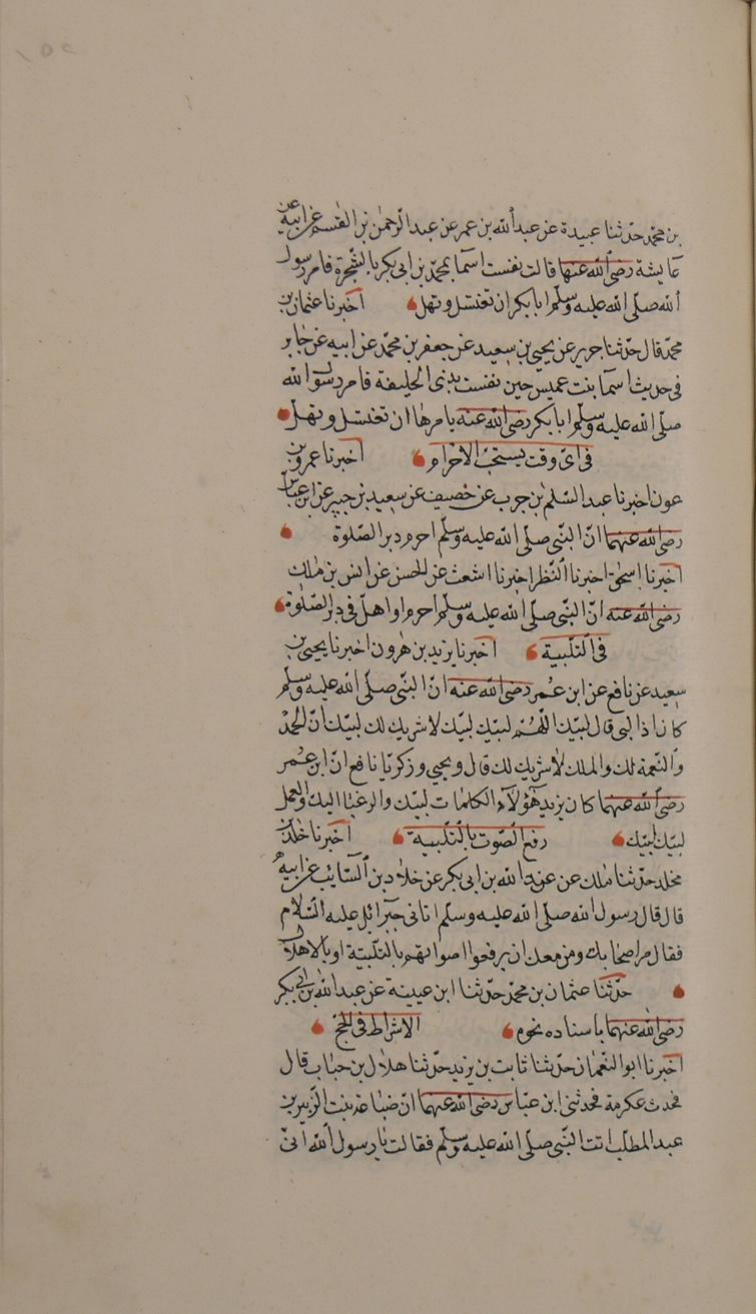 بن محمد حدثنا عبيدة عن عبد الله بن عمر عن عبد الرحمن بن القسم عن ابيه عن
عايشة رضي الله عنها قالت نفست اسما بمحمد بن ابي بكر بالشجرة فامر رسول
الله صلى الله عليه وسلم ابا بكر ان تغتسل وتهل اخبرنا عثمان بن
محمد قال حدثنا جرير عن يحيى بن سعيد عن جعفر بن محمد عن ابيه عن جابر
فى حديث اسما بنت عميس حين نفست بذى الحليفة فامر رسول الله
صلى الله عليه وسلم ابا بكر رضي الله عنه يامرها ان تغتسل وتهل
فى اى وقت يستحب الاحرام اخبرنا عمرو بن
عون اخبرنا عبد السلم بن حرب عن خصيف عن سعيد بن جبير عن ابن عباس
رضي الله عنهما ان النبى صلى الله عليه وسلم احرم دبر الصلوة
اخبرنا اسحق اخبرنا النظر اخبرنا اشعث عن الحسن عن انس بن ملك
رضي الله عنه ان النبى صلى الله عليه وسلم احرم او اهل فى دبر الصلوة
فى التلبية اخبرنا يزيد بن هرون اخبرنا يحيى بن
سعيد عن نافع عن ابن عمر رضي الله عنه ان النبى صلى الله عليه وسلم
كان اذا لبى قال لبيك اللهم لبيك لبيك لا شريك لك لبيك ان الحمد
والنعمة لك والملك لا شريك لك قال ويحيى وذكريا نافع ان ابن عمر
رضي الله عنهما كان يزيد هؤلاء الكلمات لبيك والرغبا اليك والعمل
لبيك لبيك رفع الصوت بالتلبية اخبرنا خلد بن
مخلد حدثنا ملك عن عبد الله بن ابى بكر عن خلاد بن السايب عن ابيه
قال قال رسول الله صلى الله عليه وسلم اتانى جبرائل عليه السلام
فقال مر اصحابك ومن معك ان يرفعوا اصواتهم بالتلبية او بالاهلال
حدثنا عثمان بن محمد حدثنا ابن عيينة عن عبد الله بن ابى بكر
رضي الله عنهما باسناده نحوه الاشراط فى الحج
اخبرنا ابو النعمان حدثنا ثابت بن يزيد حدثنا هلال بن خباب قال
فحدث عكرمة فحدثنى ابن عباس رضي الله عنهما ان ضباعة بنت الزبير بن
عبد المطلب اتت النبى صلى الله عليه وسلم فقالت يا رسول الله انى